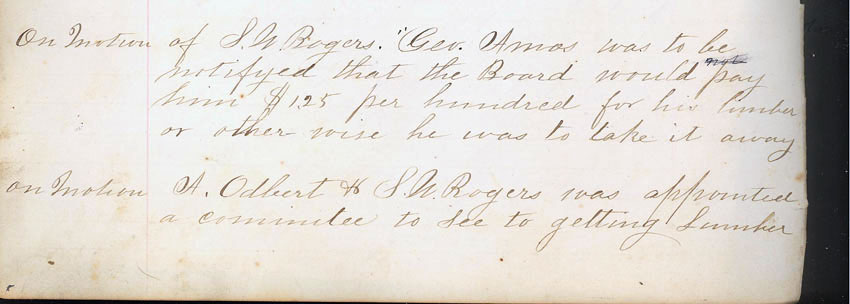 On Motion of S. W. Rogers. "Geo. Amos was to be
notifyed that the Board would pay
him $1.25 per hundred for his limber
or other wise he was to take it away
on Motion A. Odbert & S. W. Rogers was appointed
a commitee to see to getting Lumber